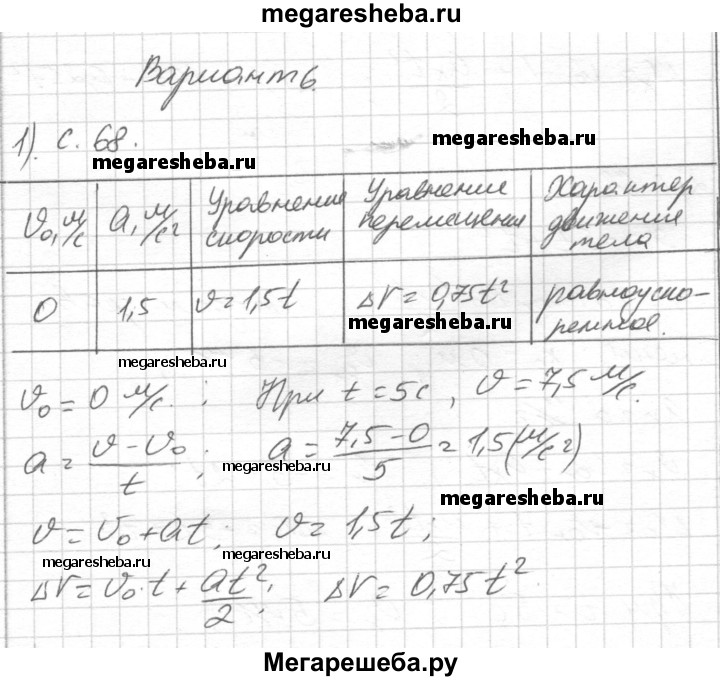 megaresheba.ru
Вариант 6.
1). с. 68.
megaresheba.ru
megaresheba.ru
v₀, м/с | a, м/с² | Уравнение скорости | Уравнение перемещения | Характер движения тела
0 | 1,5 | v = 1,5t | Δr = 0,75t² | равноускоренное.
megaresheba.ru
megaresheba.ru
v₀ = 0 м/с. ; При t = 5с, v = 7,5 м/с.
a = (v - v₀)/t ; a = (7,5 - 0)/5 = 1,5 (м/с²)
megaresheba.ru
megaresheba.ru
v = v₀ + at; v = 1,5t;
megaresheba.ru
megaresheba.ru
Δr = v₀·t + at²/2; Δr = 0,75t²
Мегарешеба.ру